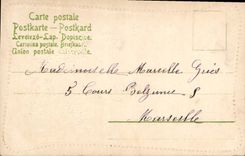 Carte postale
Postkarte — Postkard
Levelező-Lap. Dopisnice.
Cartolina postale. Briefkaart.
Union postale universelle.
Mademoiselle Marcelle Griès
5 Cours Belzunce 8
Marseille